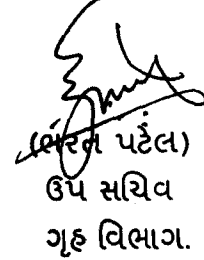 (ભરત પટેલ)
ઉપ સચિવ
ગૃહ વિભાગ.